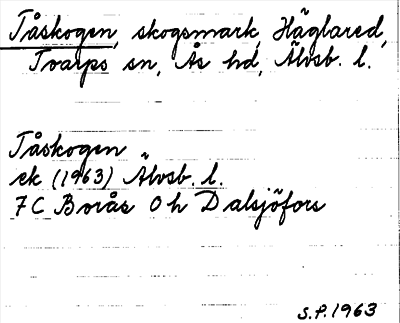 Tåskogen, skogsmark, Häglared,
Tvarps sn, Ås hd, Älvsb. l.
Tåskogen
ek (1963) Älvsb. l.
7 C Borås 0 h Dalsjöfors
S.P. 1963